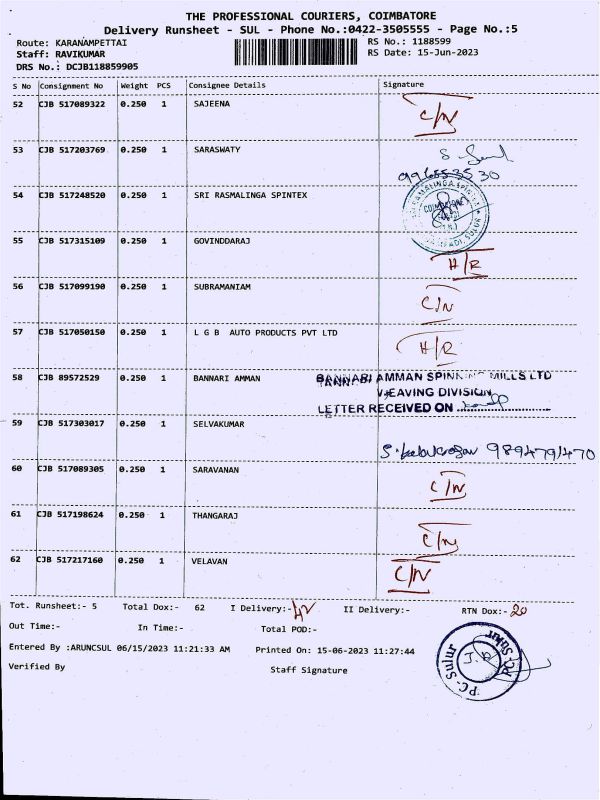 THE PROFESSIONAL COURIERS, COIMBATORE
Delivery Runsheet - SUL - Phone No.:0422-3505555 - Page No.:5
Route: KARANAMPETTAI RS No.: 1188599
Staff: RAVIKUMAR RS Date: 15-Jun-2023
DRS No.: DCJB118859905
S No Consignment No Weight PCS Consignee Details Signature
52 CJB 517089322 0.250 1 SAJEENA C/N
53 CJB 517203769 0.250 1 SARASWATY
54 CJB 517248520 0.250 1 SRI RASMALINGA SPINTEX
55 CJB 517315109 0.250 1 GOVINDDARAJ H/R
56 CJB 517099190 0.250 1 SUBRAMANIAM C/N
57 CJB 517050150 0.250 1 L G B AUTO PRODUCTS PVT LTD H/R
58 CJB 89572529 0.250 1 BANNARI AMMAN BANNARI AMMAN SPINNING MILLS LTD
WEAVING DIVISION
LETTER RECEIVED ON
59 CJB 517303017 0.250 1 SELVAKUMAR
9894791470
60 CJB 517089305 0.250 1 SARAVANAN C/N
61 CJB 517198624 0.250 1 THANGARAJ C/N
62 CJB 517217160 0.250 1 VELAVAN C/N
Tot. Runsheet:- 5 Total Dox:- 62 I Delivery:- 42 II Delivery:- RTN Dox:- 20
Out Time:- In Time:- Total POD:-
Entered By :ARUNCSUL 06/15/2023 11:21:33 AM Printed On: 15-06-2023 11:27:44
Verified By Staff Signature
PC-Sulur